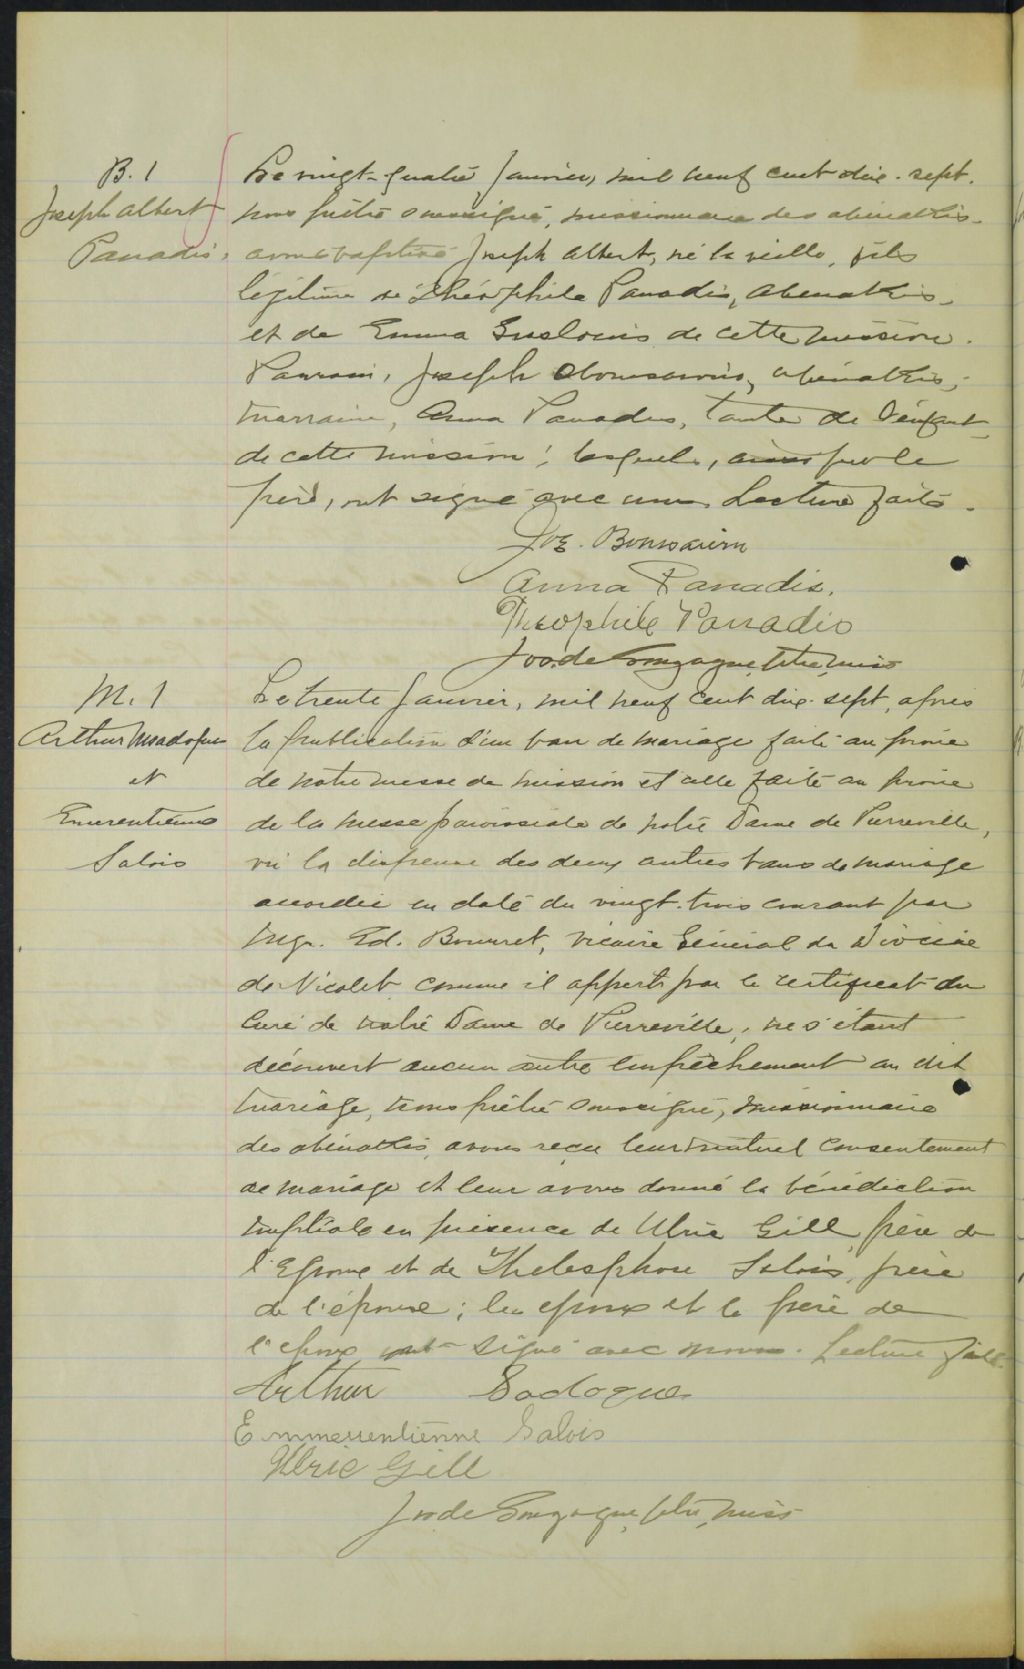 B. 1
Joseph Albert
Panadis
Le vingt-quatre Janvier, mil neuf cent dix-sept,
nous prêtre soussigné, missionnaire des abénakis
avons baptisé Joseph Albert, né la veille, fils
légitime de Théophile Panadis, abénakis,
et de Emma de cette mission.
Parrain, Joseph abénakis,
marraine, Anna Panadis, tante de l'enfant
de cette mission; lesquels, ainsi que le
père, ont signé avec nous. Lecture faite.
Joe. Bonsawin
Anna Panadis.
Théophile Panadis
Jos. de Gonzague, ptre, miss
M. 1
Arthur
et
Emerentienne
Salois
Le trente Janvier, mil neuf cent dix-sept, après
la publication d'un ban de mariage faite au prône
de notre messe de mission et celle faite au prône
de la messe paroissiale de notre Dame de Pierreville,
vu la dispense des deux autres bans de mariage
accordée en date du vingt-trois courant par
Mgr. Ed. Brunet, Vicaire Général du Diocèse
de Nicolet comme il appert par le certificat du
Curé de notre Dame de Pierreville; ne s'étant
découvert aucun autre empêchement au dit
mariage, nous prêtre soussigné, missionnaire
des abénakis, avons reçu leur mutuel consentement
de mariage et leur avons donné la bénédiction
nuptiale en présence de Ulric Gill, frère de
l'Epoux et de Thelesphore Salois, père
de l'épouse; les époux et le frère de
l'époux ont signé avec nous. Lecture faite.
Arthur Sadoques
Emmerentienne Salois
Ulric Gill
Jos de Gonzague, ptre, miss